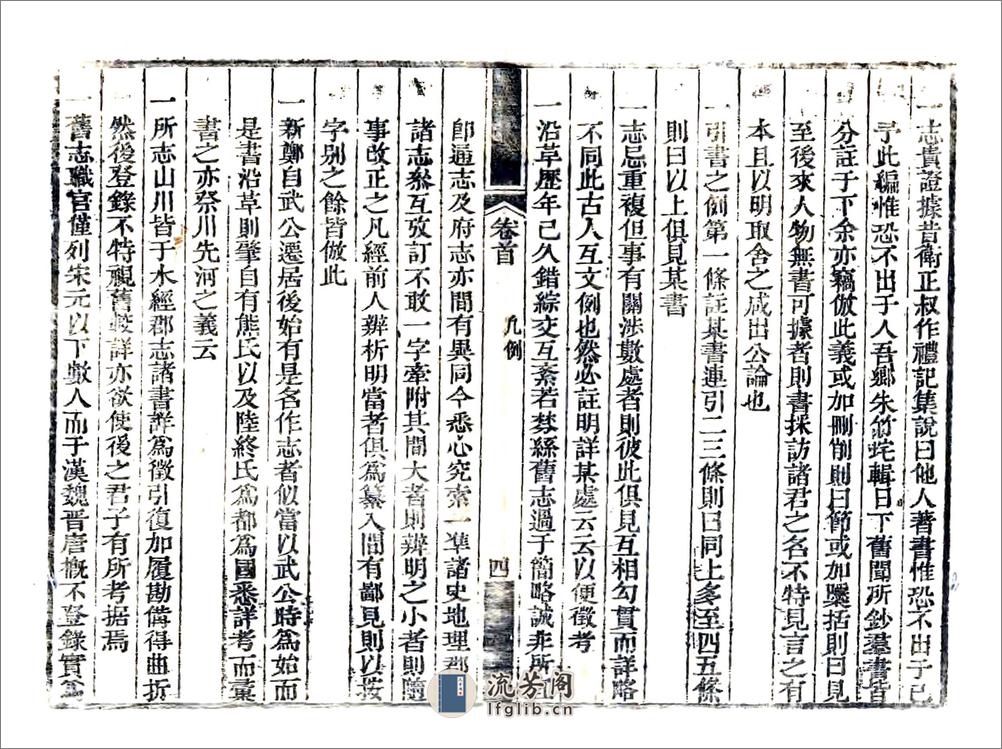 一志貴證據昔衛正叔作禮記集說曰他人著書惟恐不出于己
予此編惟恐不出于人吾鄉朱竹垞輯日下舊聞所鈔羣書皆
分註于下余亦竊倣此義或加刪削則曰節或加櫽括則曰見
至後來人物無書可據者則書採訪諸君之名不特見言之有
本且以明取舍之咸出公論也
一引書之例第一條註某書連引二三條則曰同上多至四五條
則曰以上俱見某書
一志忌重複但事有關涉數處者則彼此俱見互相勾貫而詳略
不同此古人互文例也然必註明詳某處云云以便徵考
一沿革歷年已久錯綜交互紊若棼絲舊志過于簡略誠非所
卷首
凡例
四
卽通志及府志亦間有異同今悉心究索一準諸史地理郡
諸志參互攷訂不敢一字牽附其間大者則辨明之小者則隨
事改正之凡經前人辨析明當者俱爲纂入間有鄙見則以按
字别之餘皆倣此
一新鄭自武公遷居後始有是名作志者似當以武公時爲始而
是書沿革則肇自有熊氏以及陸終氏爲都爲國悉詳考而彙
書之亦祭川先河之義云
一所志山川皆于水經郡志諸書詳爲徵引復加履勘備得曲折
然後登錄不特視舊較詳亦欲使後之君子有所考据焉
一舊志職官僅列宋元以下數人而于漢魏晉唐概不登錄實
流芳阁
lfglib.cn